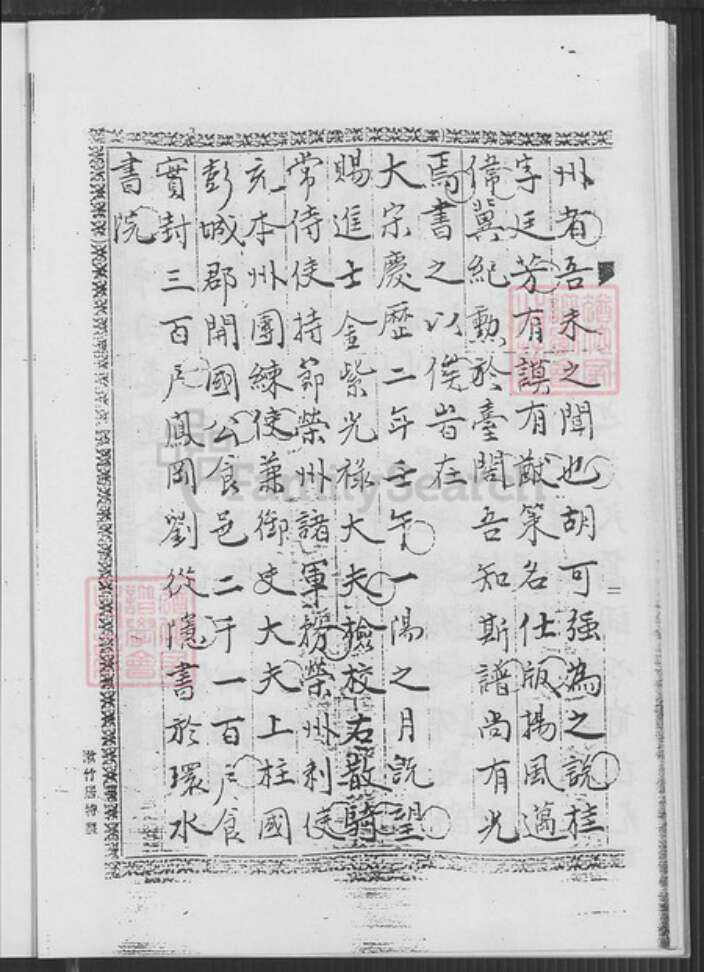 州者吾未之聞也胡可強為之說桂
字廷芳有謨有猷策名仕版揚風邁
偉冀紀勳於臺閣吾知斯譜尚有光
焉書之以俟岩在
大宋慶歷二年壬午一陽之月既望
賜進士金紫光祿大夫檢校右散騎
常侍使持節榮州諸軍榮州刺使
充本州團練使兼御史大夫上柱國
彭城郡開國公食邑二千一百戶食
實封三百戶鳳岡劉從隱書於環水
書院
FamilySearch